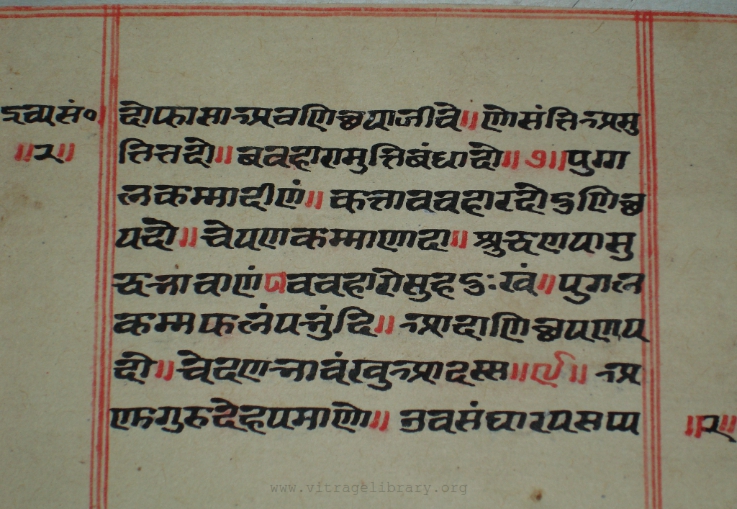 द्रव्यसं० दोफासा अठणिच्छयाजीवे॥णोसंतिअमु
॥२॥ त्तितदो॥बवहारामुत्तिबंधादो॥७॥पुग्ग
लकम्मादीणं॥कत्ताववहारदोदुणिच्छ
यदो॥चेयणकम्माणादा॥शुद्धणयासु
द्धभावाणं॥८॥ववहारोसुहदुःखं॥पुगल
कम्मफलंपभुंदि॥आदाणिच्छयणय
दो॥चेदणभावंखुआदस्स॥९॥अ
णुगुरुदेहपमाणो॥उवसंघारयसप्प ॥२॥
www.vitragelibrary.org